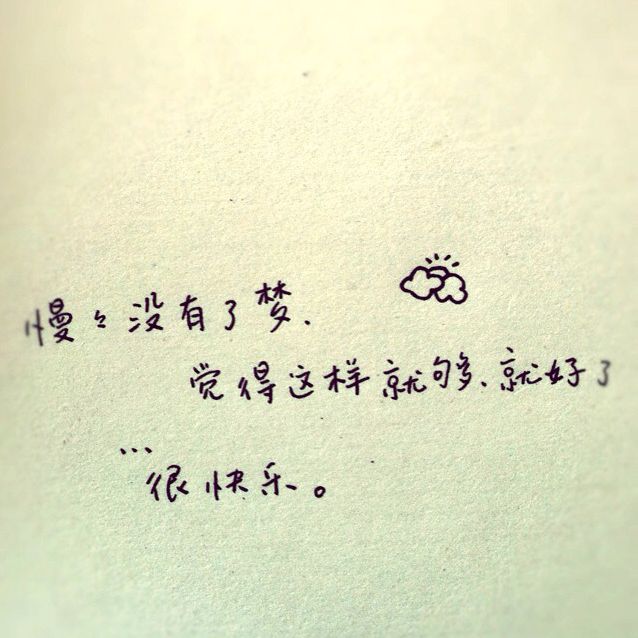 慢々没有了梦、
觉得这样就够、就好了
…
很快乐。